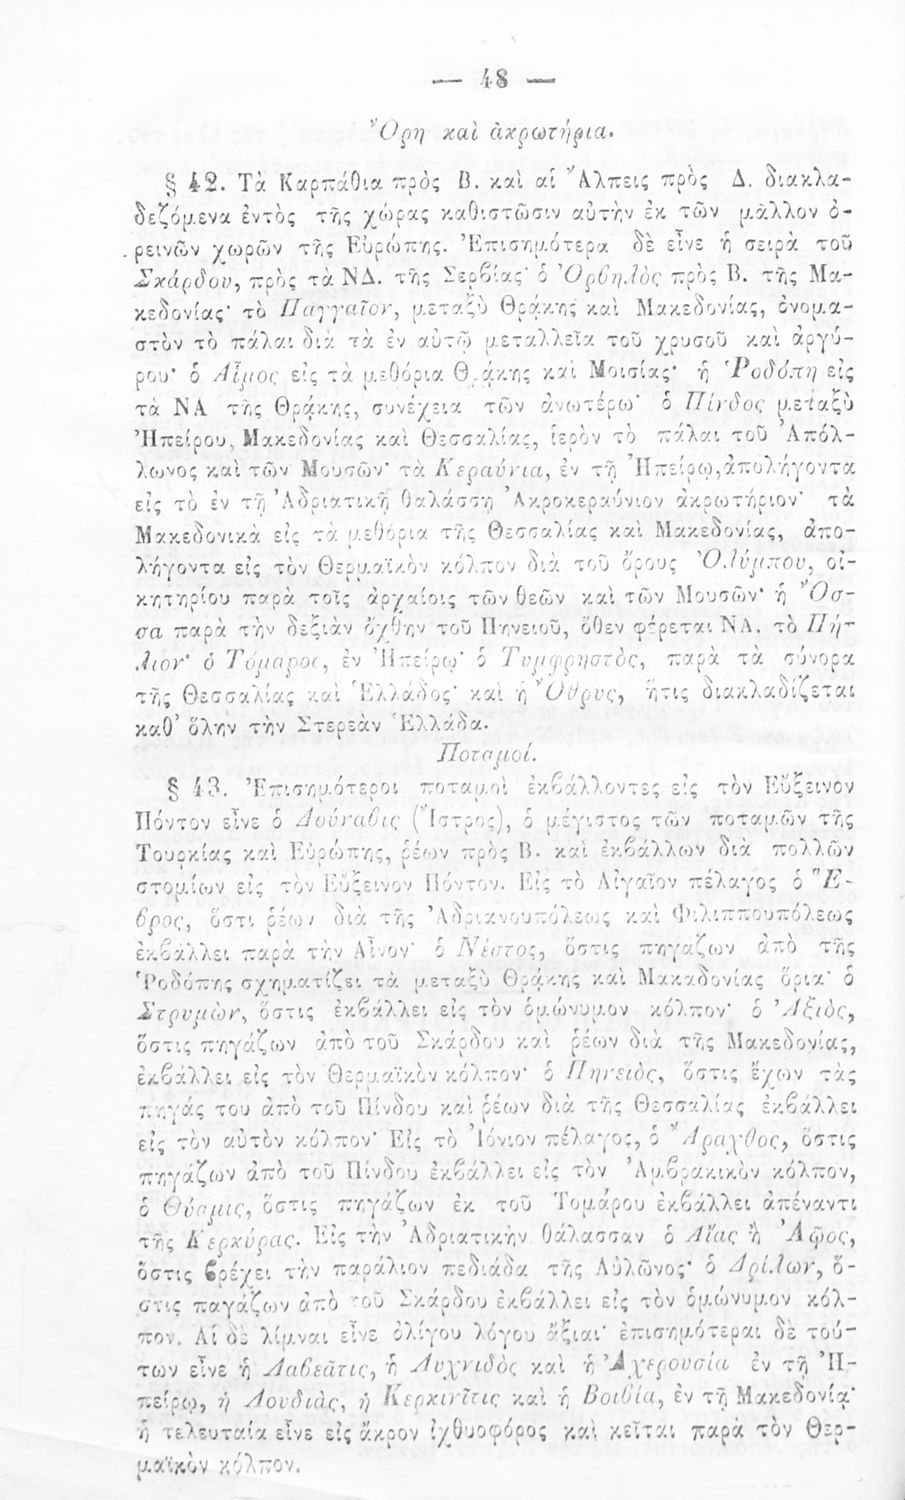 — 48 —
Ὄρη καὶ ἀκρωτήρια.
§ 42. Τὰ Καρπάθια πρὸς Β. καὶ αἱ Ἄλπεις πρὸς Δ. διακλα-
δεζόμενα ἐντὸς τῆς χώρας καθιστῶσιν αὐτὴν ἐκ τῶν μᾶλλον ὀ-
ρεινῶν χωρῶν τῆς Εὐρώπης. Ἐπισημότερα δὲ εἶνε ἡ σειρὰ τοῦ
Σκάρδου, πρὸς τὰ ΝΔ. τῆς Σερβίας· ὁ Ὀρβηλὸς πρὸς Β. τῆς Μα-
κεδονίας· τὸ Παγγαῖον, μεταξὺ Θράκης καὶ Μακεδονίας, ὀνομα-
στὸν τὸ πάλαι διὰ τὰ ἐν αὐτῷ μεταλλεῖα τοῦ χρυσοῦ καὶ ἀργύ-
ρου· ὁ Αἷμος εἰς τὰ μεθόρια Θράκης καὶ Μοισίας· ἡ Ῥοδόπη εἰς
τὰ ΝΑ τῆς Θράκης, συνέχεια τῶν ἀνωτέρω· ὁ Πίνδος μεταξὺ
Ἠπείρου, Μακεδονίας καὶ Θεσσαλίας, ἱερὸν τὸ πάλαι τοῦ Ἀπόλ-
λωνος καὶ τῶν Μουσῶν· τὰ Κεραύνια, ἐν τῇ Ἠπείρῳ, ἀπολήγοντα
εἰς τὸ ἐν τῇ Ἀδριατικῇ θαλάσσῃ Ἀκροκεραύνιον ἀκρωτήριον· τὰ
Μακεδονικὰ εἰς τὰ μεθόρια τῆς Θεσσαλίας καὶ Μακεδονίας, ἀπο-
λήγοντα εἰς τὸν Θερμαϊκὸν κόλπον διὰ τοῦ ὄρους Ὀλύμπου, οἰ-
κητηρίου παρὰ τοῖς ἀρχαίοις τῶν θεῶν καὶ τῶν Μουσῶν· ἡ Ὄσ-
σα παρὰ τὴν δεξιὰν ὄχθην τοῦ Πηνειοῦ, ὅθεν φέρεται ΝΑ. τὸ Πή-
λιον· ὁ Τόμαρος, ἐν Ἠπείρῳ· ὁ Τυμφρηστὸς, παρὰ τὰ σύνορα
τῆς Θεσσαλίας καὶ Ἑλλάδος· καὶ ἡ Ὄθρυς, ἥτις διακλαδίζεται
καθ' ὅλην τὴν Στερεὰν Ἑλλάδα.
Ποταμοί.
§ 43. Ἐπισημότεροι ποταμοὶ ἐκβάλλοντες εἰς τὸν Εὔξεινον
Πόντον εἶνε ὁ Δούναβις (Ἴστρος), ὁ μέγιστος τῶν ποταμῶν τῆς
Τουρκίας καὶ Εὐρώπης, ῥέων πρὸς Β. καὶ ἐκβάλλων διὰ πολλῶν
στομίων εἰς τὸν Εὔξεινον Πόντον. Εἰς τὸ Αἰγαῖον πέλαγος ὁ Ἕ-
βρος, ὅστι ῥέων διὰ τῆς Ἀδριανουπόλεως καὶ Φιλιππουπόλεως
ἐκβάλλει παρὰ τὴν Αἶνον· ὁ Νέστος, ὅστις πηγάζων ἀπὸ τῆς
Ῥοδόπης σχηματίζει τὰ μεταξὺ Θράκης καὶ Μακαδονίας ὅρια· ὁ
Στρυμὼν, ὅστις ἐκβάλλει εἰς τὸν ὁμώνυμον κόλπον· ὁ Ἀξιὸς,
ὅστις πηγάζων ἀπὸ τοῦ Σκάρδου καὶ ῥέων διὰ τῆς Μακεδονίας,
ἐκβάλλει εἰς τὸν Θερμαϊκὸν κόλπον· ὁ Πηνειὸς, ὅστις ἔχων τὰς
πηγάς του ἀπὸ τοῦ Πίνδου καὶ ῥέων διὰ τῆς Θεσσαλίας ἐκβάλλει
εἰς τὸν αὐτὸν κόλπον· Εἰς τὸ Ἰόνιον πέλαγος, ὁ Ἄραχθος, ὅστις
πηγάζων ἀπὸ τοῦ Πίνδου ἐκβάλλει εἰς τὸν Ἀμβρακικὸν κόλπον,
ὁ Θύαμις, ὅστις πηγάζων ἐκ τοῦ Τομάρου ἐκβάλλει ἀπέναντι
τῆς Κερκύρας. Εἰς τὴν Ἀδριατικὴν θάλασσαν ὁ Αἴας ἢ Ἀῷος,
ὅστις βρέχει τὴν παράλιον πεδιάδα τῆς Αὐλῶνος· ὁ Δρίλων, ὅ-
στις παγάζων ἀπὸ τοῦ Σκάρδου ἐκβάλλει εἰς τὸν ὁμώνυμον κόλ-
πον. Αἱ δὲ λίμναι εἶνε ὀλίγου λόγου ἄξιαι· ἐπισημότεραι δὲ τού-
των εἶνε ἡ Λαβεᾶτις, ἡ Λυχνιδὸς καὶ ἡ Ἀχερουσία ἐν τῇ Ἠ-
πείρῳ, ἡ Λουδιὰς, ἡ Κερκινῖτις καὶ ἡ Βοιβία, ἐν τῇ Μακεδονίᾳ·
ἡ τελευταία εἶνε εἰς ἄκρον ἰχθυοφόρος καὶ κεῖται παρὰ τὸν Θερ-
μαϊκὸν κόλπον.